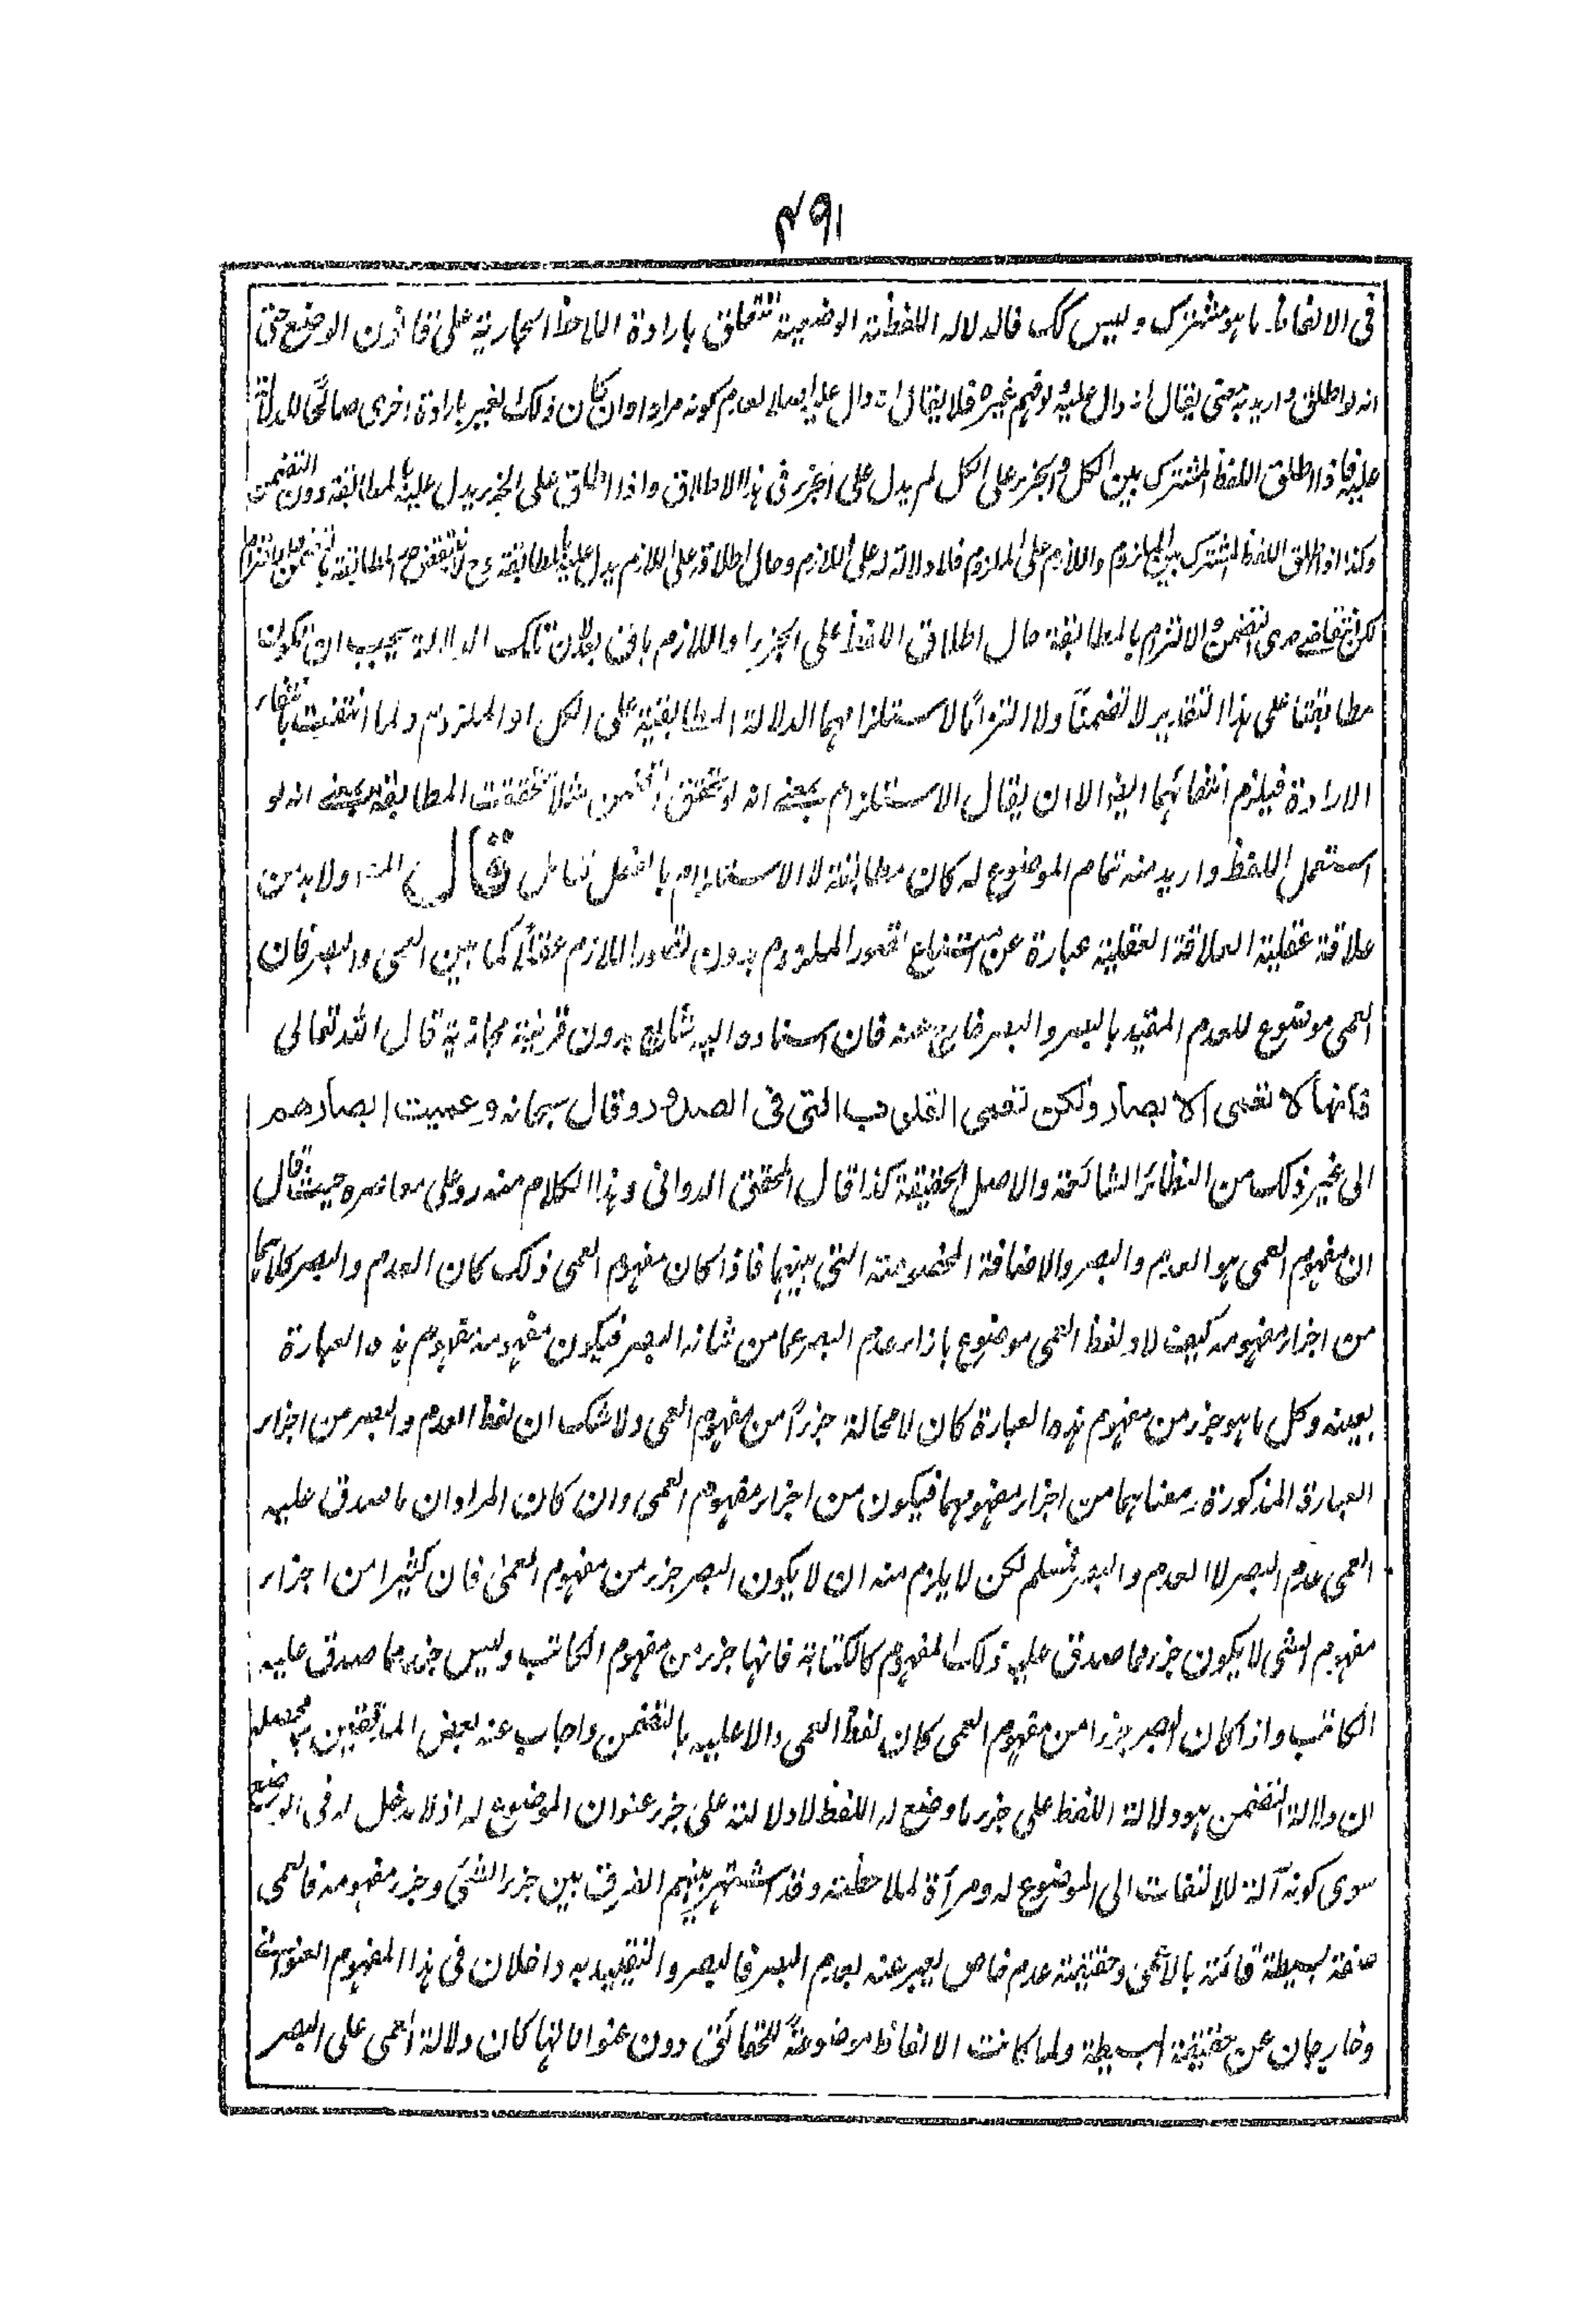 ٤٩١
فى الالفاظ ما هو مشترك وليس كك فالدلالة اللفظية الوضعية تتعلق بارادة اللافظ الجارية على قانون الوضع حتى
انه لو اطلق واريد به معنى يقال انه دال عليه ولو فهم غيره فلا يقال انه دال عليه اصلا لعدم كونه مرادا وان كان ذلك الغير بارادة اخرى صالحًا للدلالة
عليه فاذا اطلق اللفظ المشترك بين الكل والجزء على الكل لم يدل على الجزء فى هذا الاطلاق واذا اطلق على الجزء يدل عليه بالمطابقة دون التضمن
وكذا اذا اطلق اللفظ المشترك بين الملزوم واللازم على الملزوم فلا دلالة له على اللازم وحال اطلاقه على اللازم يدل عليه بالمطابقة وح لا ينتقض حد المطابقة بالتضمن والالتزام
لكن انتقاض حدى التضمن والالتزام بالمطابقة حال اطلاق اللفظ على الجزء او اللازم باق بعد لان تلك الدلالة يجب ان تكون
مطابقتا على هذا التقدير لا تضمنًا ولا التزامًا لاستلزامهما الدلالة المطابقية على الكل او الملزوم ولما انتفيت بانتفاء
الارادة فيلزم انتفائهما ايضا الا ان يقال الاستلزام بمعنے انه لو تحقق التضمن مثلا تحققت المطابقة بمعنے انه لو
استعمل اللفظ واريد منه تمام الموضوع له كان مطابقة لا الاستلزام بالفعل تامل قال المص ولا بد من
علاقة عقلية العلاقة العقلية عبارة عن امتناع تصور الملزوم بدون تصور اللازم عقلًا كما بين العمى والبصر فان
العمى موضوع للعدم المقيد بالبصر والبصر خارج عنه فان اسناده اليه شائع بدون قرينة مجازية قال الله تعالى
فانها لا تعمى الابصار ولكن تعمى القلوب التى فى الصدور وقال سبحانه وعميت ابصارهم
الى غير ذلك من النظائر الشائعة والاصل الحقيقة كذا قال المحقق الدوانى وهذا الكلام منه رد على معاصره حيث قال
ان مفهوم العمى هو العدم والبصر والاضافة المخصوصة التى بينهما فاذا كان مفهوم العمى ذلك كان العدم والبصر كلاهما
من اجزاء مفهومه كيف لا ولفظ العمى موضوع بازاء عدم البصر عما من شانه البصر فيكون مفهومه مفهوم هذه العبارة
بعينه وكل ما هو جزء من مفهوم هذه العبارة كان لا محالة جزءًا من مفهوم العمى ولا شك ان لفظ العدم والبصر من اجزاء
العبارة المذكورة ومعناهما من اجزاء مفهومها فيكون من اجزاء مفهوم العمى وان كان المراد ان ما صدق عليه
العمى عدم البصر لا العدم والبصر فمسلم لكن لا يلزم منه ان لا يكون البصر جزء من مفهوم العمىٰ فان كثيرا من اجزاء
مفهوم الشى لا يكون جزء مما صدق عليه ذلك المفهوم كالكتابة فانها جزء من مفهوم الكاتب وليس جزء مما صدق عليه
الكاتب واذا كان البصر جزءا من مفهوم العمى كان لفظ العمى دالا عليه بالتضمن واجاب عنه بعض المدققين بما محصله
ان دلالة التضمن هو دلالة اللفظ على جزء ما وضع له اللفظ لا دلالته على جزء عنوان الموضوع له اذ لا مدخل له فى الوضع
سوى كونه آلة للالتفات الى الموضوع له ومرآة لملاحظته وقد اشتهر بينهم الفرق بين جزء الشئ وجزء مفهومه فالعمى
صفة بسيطة قائمة بالاعمى وحقيقته عدم خاص يعبر عنه بعدم البصر فالبصر والتقييد به داخلان فى هذا المفهوم العنوانى
وخارجان عن حقيقته البسيطة ولما كانت الالفاظ موضوعةً للحقائق دون عنواناتها كان دلالة العمى على البصر